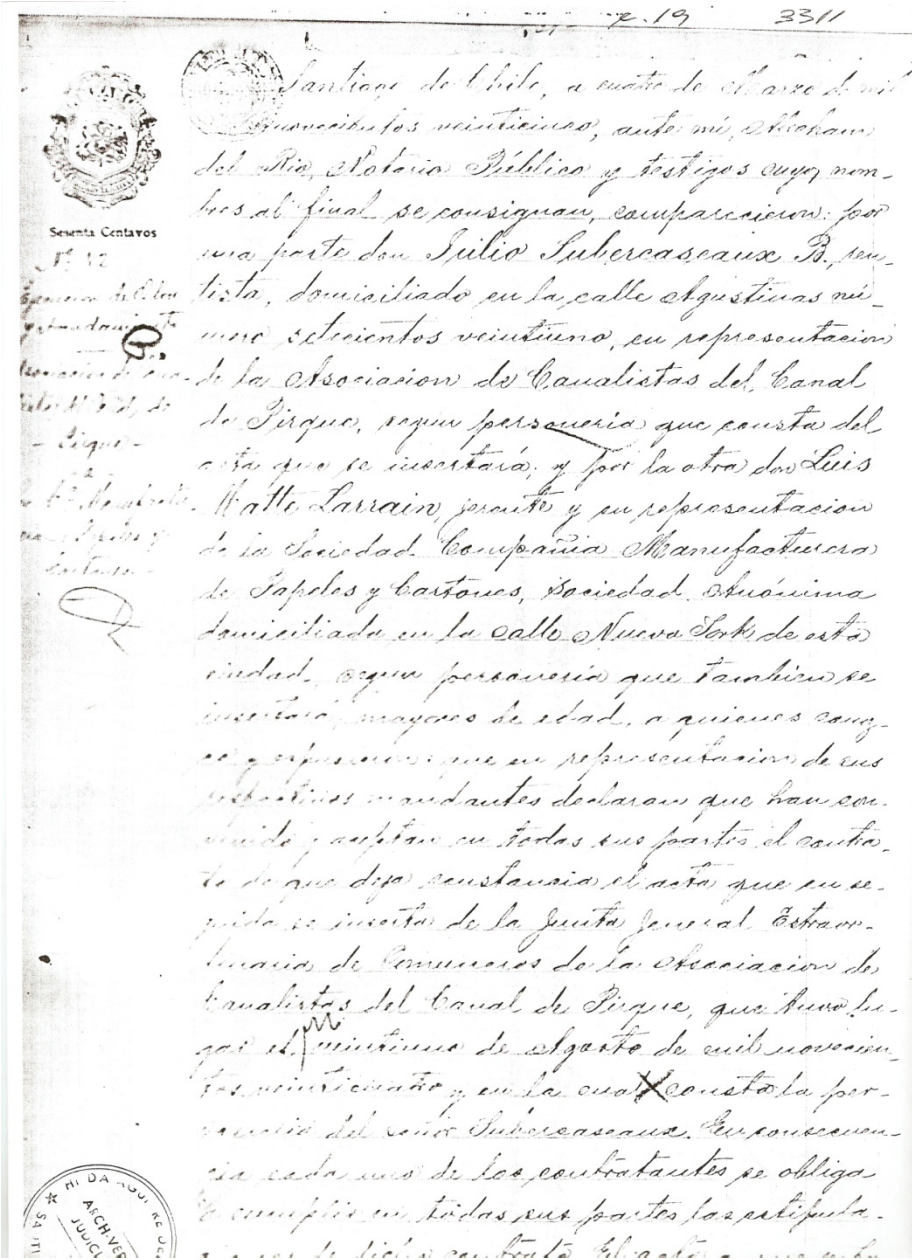 3311
Santiago de Chile, a cuatro de Marzo de mil
novecientos veinticinco, ante mí, Abraham
del Rio, Notario Público y testigos cuyos nom-
bres al final se consignan, comparecieron: por
una parte don Julio Subercaseaux B., ren-
tista, domiciliado en la calle Agustinas nú-
mero setecientos veintiuno, en representacion
de la Asociacion de Canalistas del Canal
de Pirque, segun personeria que consta del
acta que se insertará; y por la otra don Luis
Matte Larrain, jerente y en representacion
de la Sociedad Compañia Manufacturera
de Papeles y Cartones, Sociedad Anónima
domiciliada en la calle Nueva York de esta
ciudad, segun personeria que tambien se
insertará, mayores de edad, a quienes conoz-
co y espusieron: que en representacion de sus
respectivos mandantes declaran que han con-
venido y aceptan en todas sus partes el contra-
to de que deja constancia el acta que en se-
guida se inserta de la Junta Jeneral Estraor-
dinaria de Comuneros de la Asociacion de
Canalistas del Canal de Pirque, que tuvo lu-
gar el veintiuno de Agosto de mil novecien-
tos veinticuatro y en la cual consta la per-
soneria del señor Subercaseaux. En consecuen-
cia cada uno de los contratantes se obliga
a cumplir en todas sus partes las estipula-
ciones de dicho contrato. El acta a que
Sesenta Centavos
Nº 42
Pirque
ARCHIVERO